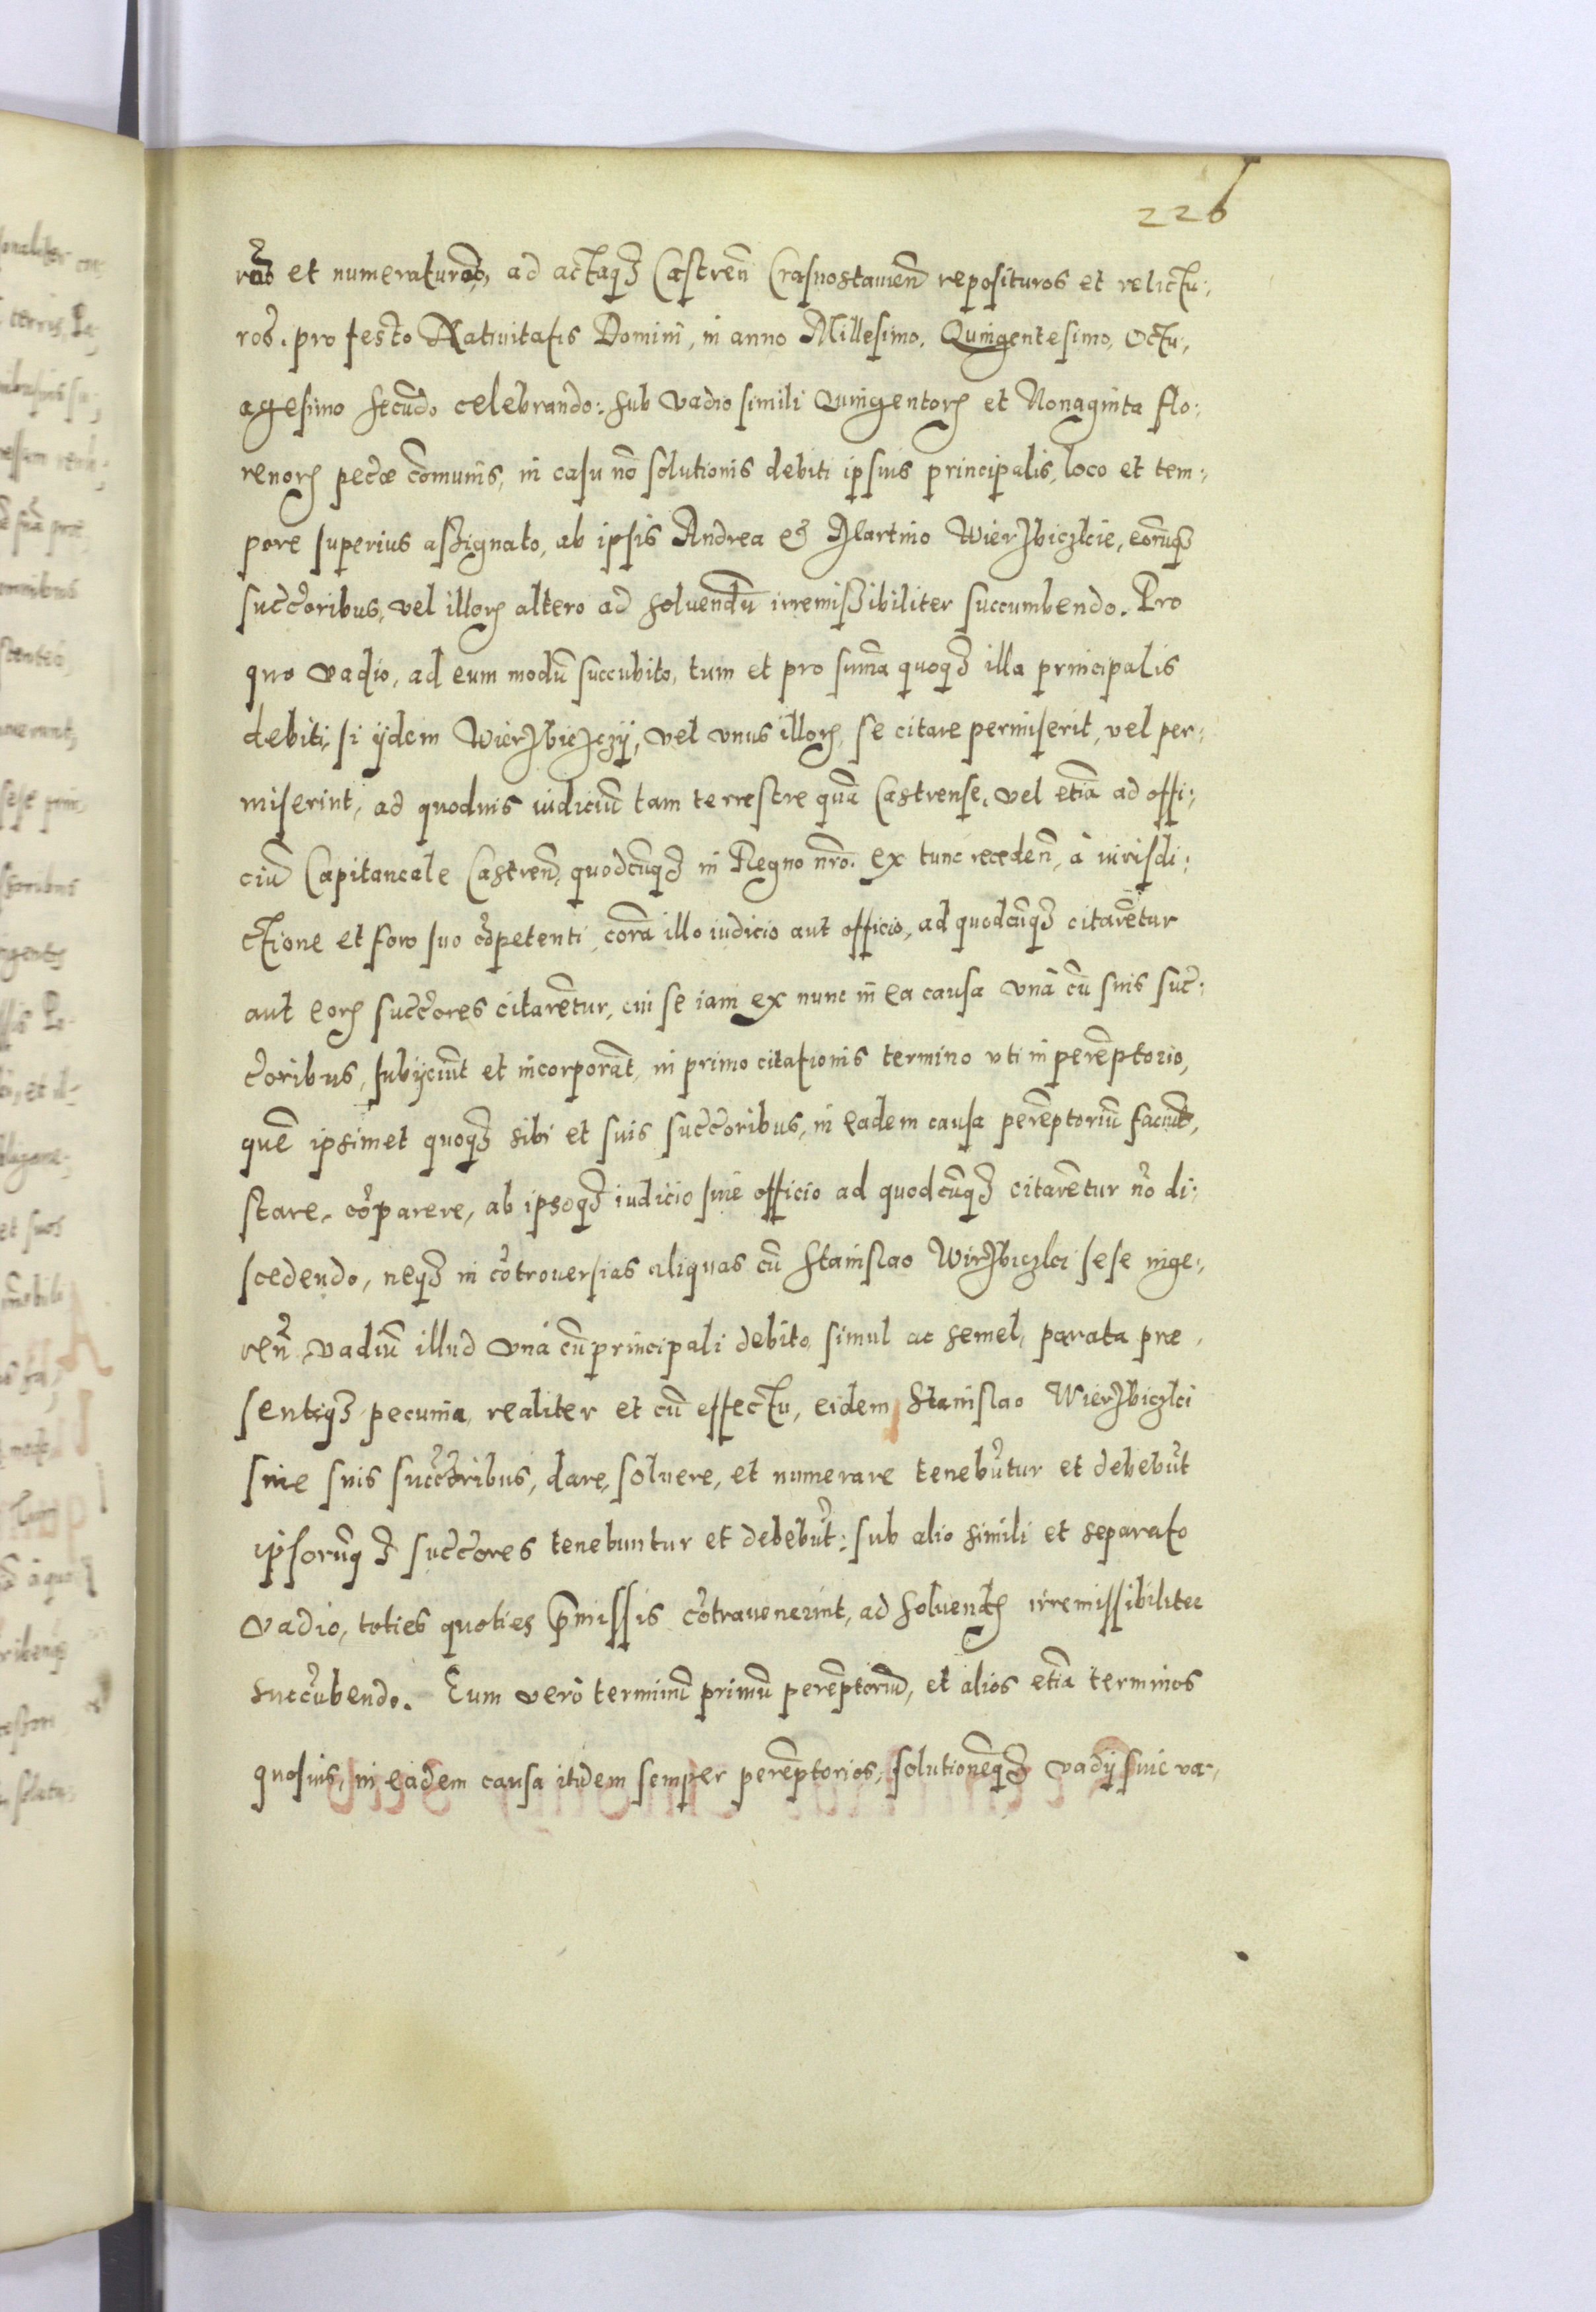 226
ros et numeraturos, ad actaqꝫ Castreñ Crasnostauieñ reposituros et relictu:
ros. pro festo Natiuitatis Domini, in anno Millesimo, Quingentesimo, Octu,
agesimo secũdo celebrando: sub vadio simili Quingentorꝫ et Nonaginta flo:
renorꝫ pecõe cõmunis, in casu nõ solutionis debiti ipsius principalis, loco et tem:
pore superius assignato, ab ipsis Andrea et Martino Wierzbiczkie, eorũqꝫ
succõribus, vel illorꝫ altero ad soluendũ irremissibiliter succumbendo. Pro
quo vadio, ad eum modũ succubito, tum et pro sum̃a quoqꝫ illa principalis
debiti, si ijdem Wierzbiczczÿ, vel vnus illorꝫ, se citare permiserit, vel per:
miserint, ad quoduis iudiciũ tam terrestre quã Castrense, vel etiã ad offi:
ciũ Capitaneale Castreñ, quodcũqꝫ in Regno nrõ. ex tunc recedeñ, à iurisdi:
ctione et foro suo cõpetenti, corã illo iudicio aut officio, ad quodcũqꝫ citarẽtur
aut eorꝫ succõres citarẽtur, cui se iam ex nunc in ea causa vnâ cũ suis suc̃:
c̃oribus, subijciũt et incorporãt, in primo citationis termino vti in perẽptorio,
quẽ ipsimet quoqꝫ sibi et suis succ̃oribus, in eadem causa perẽptoriũ faciũt,
stare, cõparere, ab ipsoqꝫ iudicio siue officio ad quodcũqꝫ citarẽtur nõ di:
scedendo, neqꝫ in cõtrouersias aliquas cũ Stanislao Wirzbiczki sese inge:,
reñ vadiũ illud vnâ cũ principali debito, simul ac semel, parata præ,
sentiqꝫ pecunia, realiter et cũ effectu, eidem Stanislao Wierzbiczki
siue suis succ̃oribus, dare, soluere, et numerare tenebũtur et debebũt
ipsorũqꝫ succ̃ores tenebuntur et debebũt: sub alio simili et separato
vadio, toties quoties p̃missis cõtrauenerint, ad soluendꝫ irremissibiliter
succũbendo. Eum verò terminũ primũ perẽptoriũ, et alios etiã terminos
quosuis, in eadem causa itidem semper perẽptorios, solutionẽqꝫ vadij siue va:,